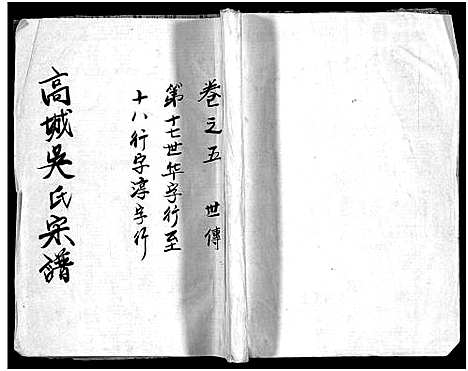 卷之五 世傳
第十七世华字行至
十八行字淳字行
高城吳氏宗譜